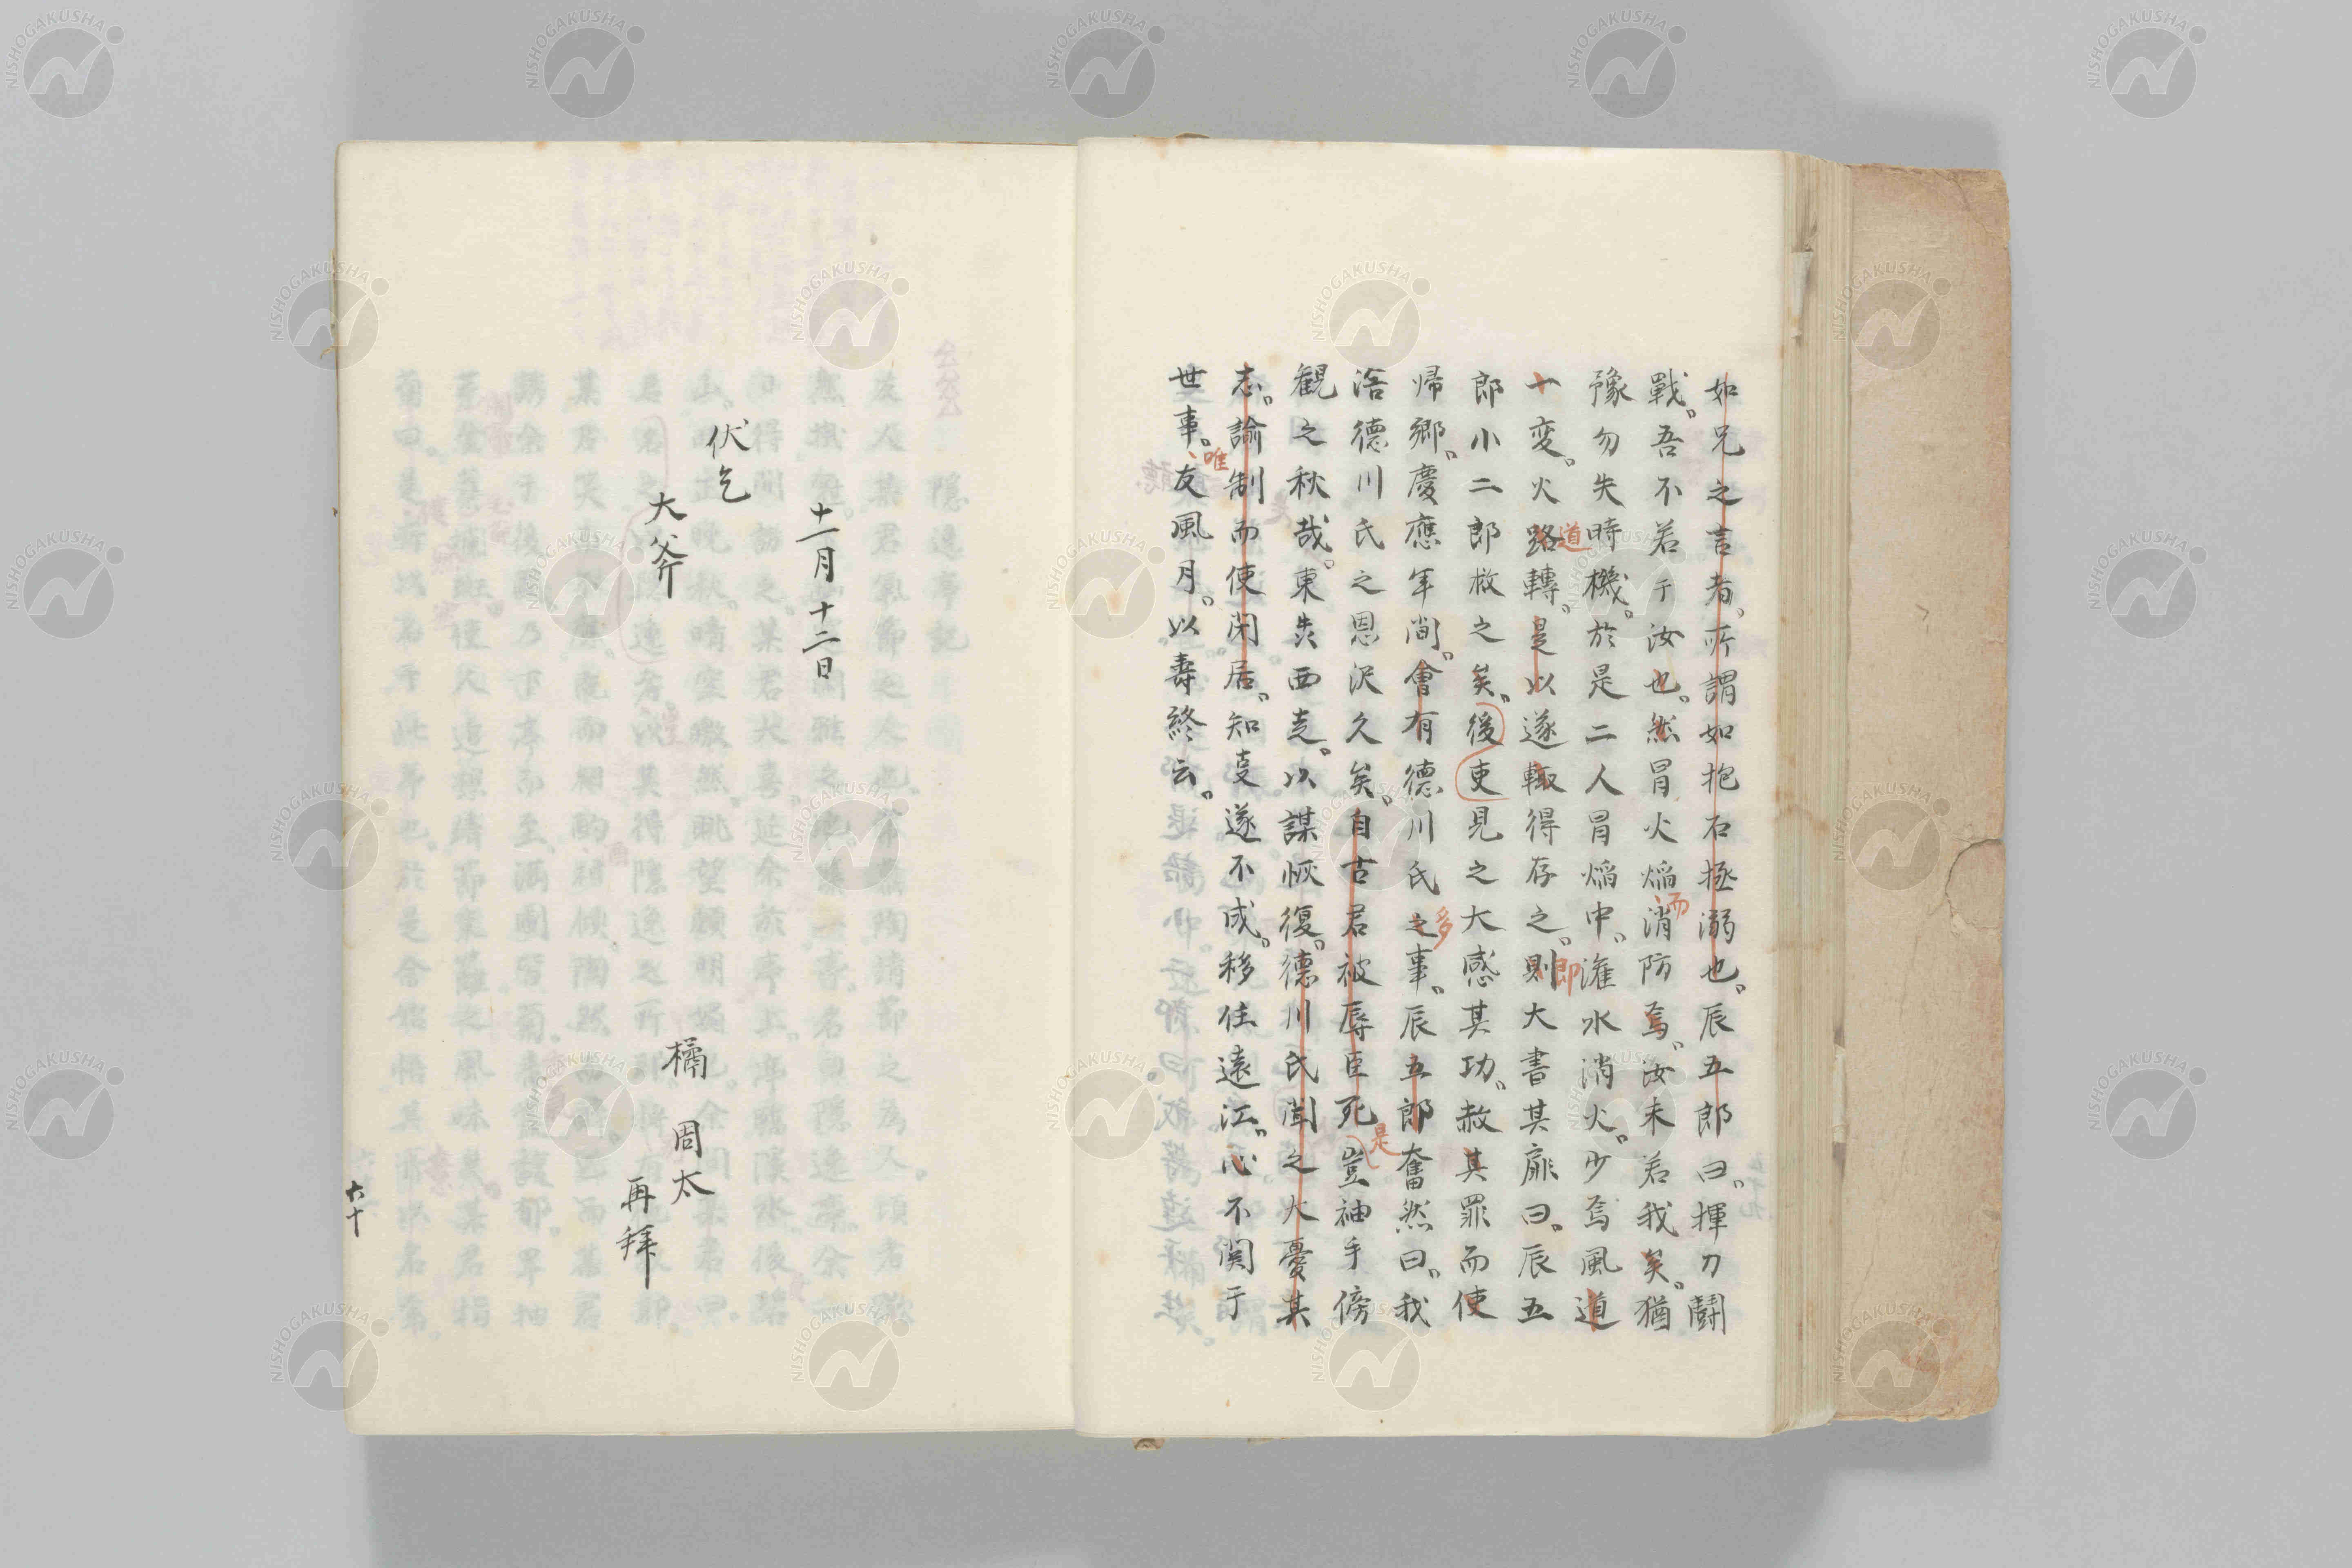 如兄之言者、所謂如抱石拯溺也。辰五郎曰。揮刀鬪
戰。吾不若于汝也。然冒火熖消防焉。汝未若我矣。猶
而
豫勿失時機。於是二人冒熖中。灌水消火。少焉風道
十変。火路轉。是以遂輙得存之。則大書其扉曰。辰五
道
即
郎小二郎救之矣。後吏見之大感其功。赦其罪而使
帰郷。慶應年間。會有德川氏之事。辰五郎奮然曰。我
多
浴德川氏之恩沢久矣。自古君被辱臣死豈袖手傍
是
観之秋哉。東奔西走。以謀恢復。德川氏聞之大憂其
志。諭制而使閑居。知変遂不成。移住遠江。心不関于
世事。友風月。以壽終云。
唯
十一月十二日
伏乞
大斧
橘周太
再拜
六十
NISHOGAKUSHA